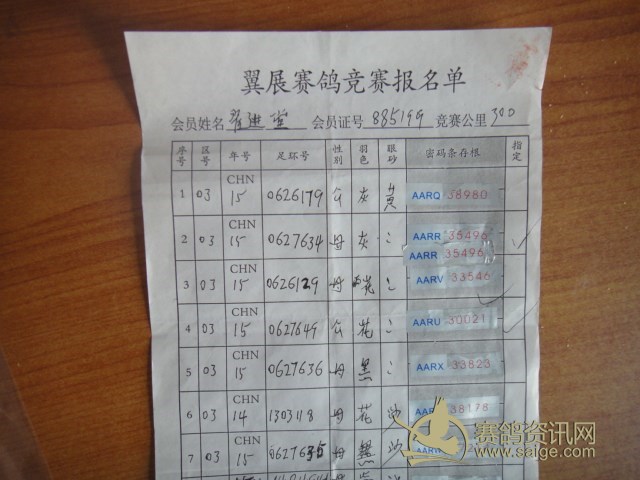 翼展赛鸽竞赛报名单
会员姓名 翟进堂 会员证号 885199 竞赛公里 300
序号 区号 年号 足环号 性别 羽色 眼砂 密码条存根 指定
1 03 CHN 15 0626179 公 灰 黄 AARQ 38980
2 03 CHN 15 0627634 母 灰 〃 AARR 35496
AARR 35496
3 03 CHN 15 0626129 母 花 〃 AARV 33546
4 03 CHN 15 0627649 公 花 〃 AARU 30021
5 03 CHN 15 0627636 母 黑 〃 AARX 33823
6 03 CHN 14 1303118 母 花 砂 38178
7 03 CHN 15 0627635 母 黑 砂
赛鸽资讯网
www.saige.com